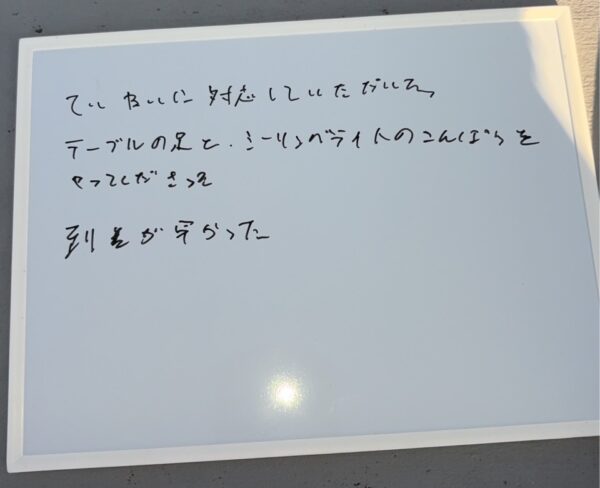 ていねいに対応していただいた。
テーブルの足と、シーリングライトのこんぽうを
やってくださって
到着が早かった